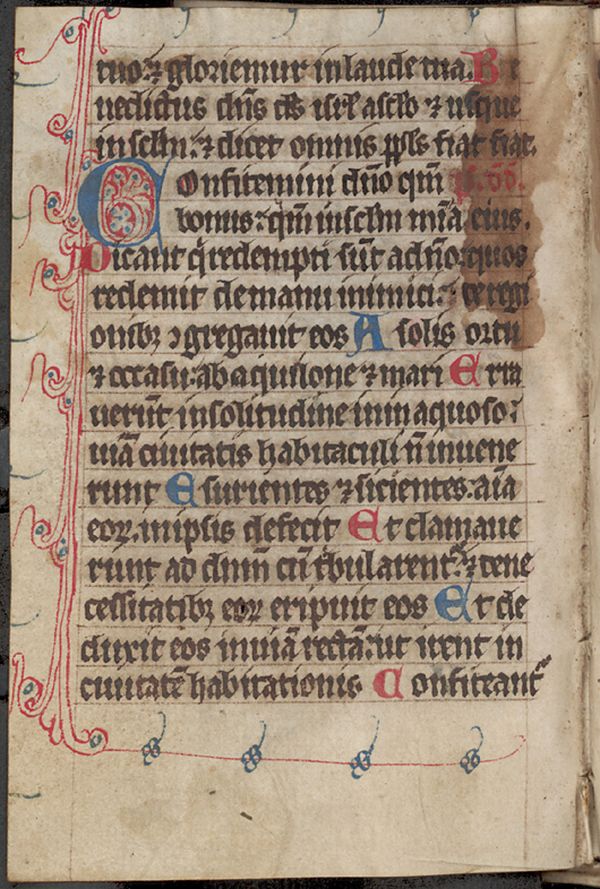 tuo: ⁊ gloriemur in laude tua. Be
nedictus dn̄s ds̄ isrl̄ a sclo ⁊ usque
in sclm: ⁊ dicet omnis ppls fiat fiat.
Confitemini dn̄o qm̄ p̄s. dd.
bonus: qm̄ in sclm mīa eius.
Dicant q̇ redempti sūt a dn̄o: quos
redemit de manu inimici: ⁊ de regi
onibꝫ ꝯgregauit eos A solis ortu
⁊ occasu: ab aquilone ⁊ mari Erra
uerūt in solitudine in inaquoso:
uiā ciuitatis habitaculi n̄ inuene
runt Esurientes ⁊ sicientes: aīa
eoꝝ in ipsis defecit Et clamaue
runt ad dnm̄ cū t̊bularent᷑: ⁊ de ne
cessitatibꝫ eoꝝ eripuit eos Et de
duxit eos in uiā rectā: ut irent in
ciuitatē habitationis Confiteant᷑